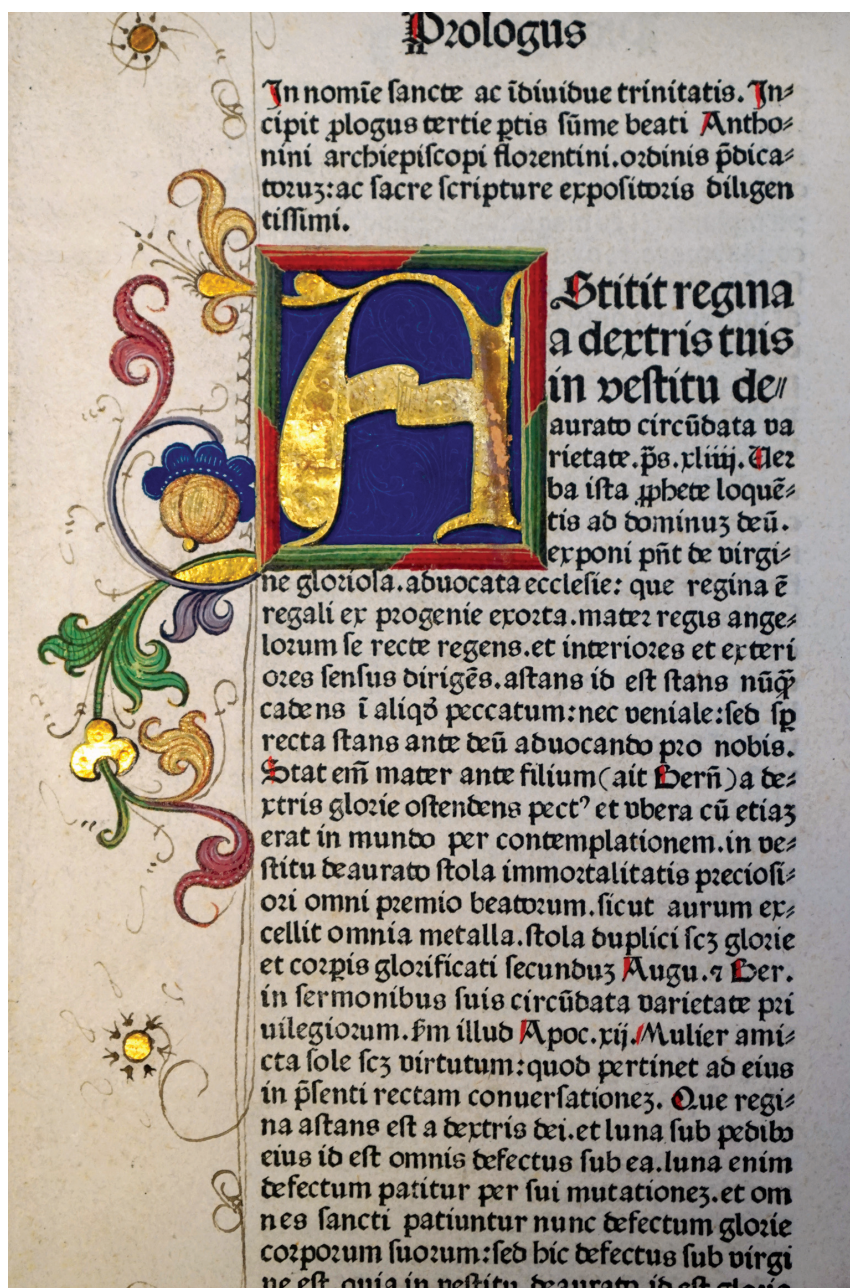 Prologus
In nomīe sancte ac īdiuidue trinitatis. In⸗
cipit ꝓlogus tertie ꝑtis sūme beati Antho⸗
nini archiepiscopi florentini.ordinis p̄dica⸗
toruꝫ:ac sacre scripture expositoris diligen
tissimi.
AStitit regina
a dextris tuis
in vestitu de⸗
aurato circūdata va
rietate.p̄s.xliiij. Uer
ba ista ꝓphete loquē⸗
tis ad dominuꝫ deū.
exponi pn̄t de virgi⸗
ne gloriosa.aduocata ecclesie: que regina ē
regali ex progenie exorta.mater regis ange⸗
lorum se recte regens.et interiores et exteri
ores sensus dirigēs.astans id est stans nūꝙ̄
cadens ī aliqḋ peccatum:nec veniale:sed sꝑ
recta stans ante deū aduocando pro nobis.
Stat em̄ mater ante filium(ait Bern̄)a de⸗
xtris glorie ostendens pectꝰ et vbera cū etiaꝫ
erat in mundo per contemplationem.in ve⸗
stitu deaurato stola immortalitatis preciosi⸗
ori omni premio beatorum.sicut aurum ex⸗
cellit omnia metalla.stola duplici scꝫ glorie
et corꝑis glorificati secunduꝫ Augu.⁊ Ber.
in sermonibus suis circūdata varietate pri
uilegiorum.s̄m illud Apoc.xij. Mulier ami⸗
cta sole scꝫ virtutum:quod pertinet ad eius
in p̄senti rectam conuersationeꝫ. Que regi⸗
na astans est a dextris dei.et luna sub pedibꝰ
eius id est omnis defectus sub ea.luna enim
defectum patitur per sui mutationeꝫ.et om
nes sancti patiuntur nunc defectum glorie
corporum suorum:sed hic defectus sub virgi
ne est quia in vestitu deaurato id est glorie